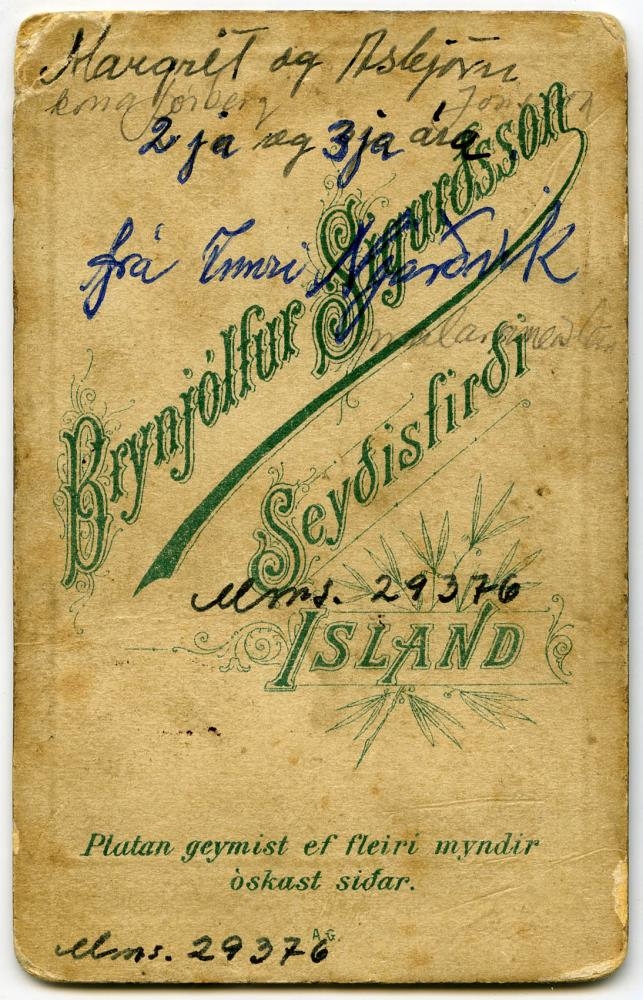 Margrét og Asbjörn
kona
2 ja og 3 ja ára
frá Innri Njarðvík
Brynjólfur Sigurðsson
Seyðisfirði
Mms. 29376
ISLAND
Platan geymist ef fleiri myndir
òskast siðar.
A.G.
Mms. 29376